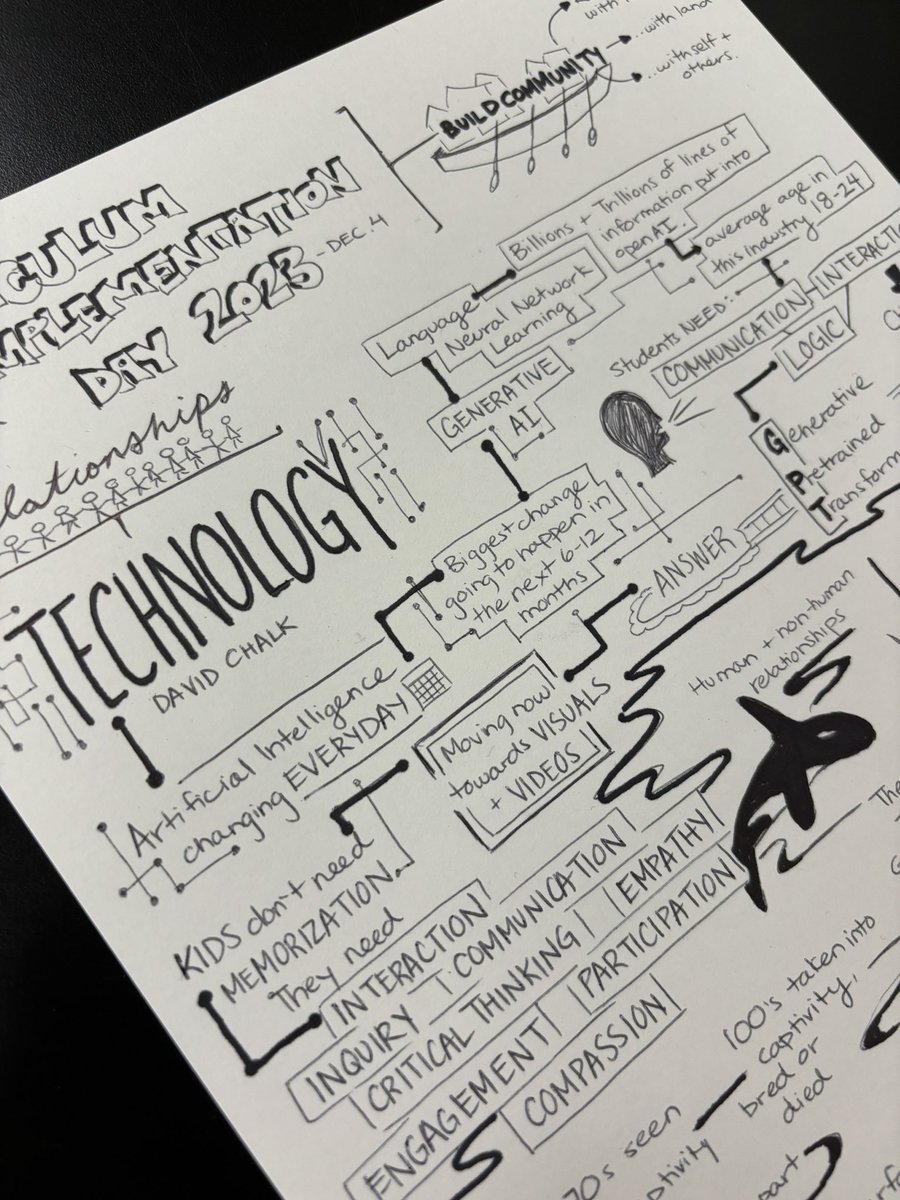 BUILD COMMUNITY
with
..with land
..with self +
others.
CULUM
MPLEMENTATION
DAY 2023
-DEC. 4
elationships
TECHNOLOGY
DAVID CHALK
Artificial Intelligence
changing EVERYDAY
Biggest change
going to happen in
the next 6-12
months
GENERATIVE
AI
Language
Neural Network
Learning
Billions + Trillions of lines of
information put into
openAI.
average age in
this industry 18-24
Students NEED:
COMMUNICATION
INTERACTIO
LOGIC
Generative
Pretrained
Transform
ANSWER
Moving now
towards VISUALS
+ VIDEOS
KIDS don't need
MEMORIZATION.
They need
INTERACTION
INQUIRY COMMUNICATION
CRITICAL THINKING EMPATHY
ENGAGEMENT PARTICIPATION
COMPASSION
Human + non-human
relationships
The
100's taken into
captivity,
bred or
died
70's seen
ptivity
part